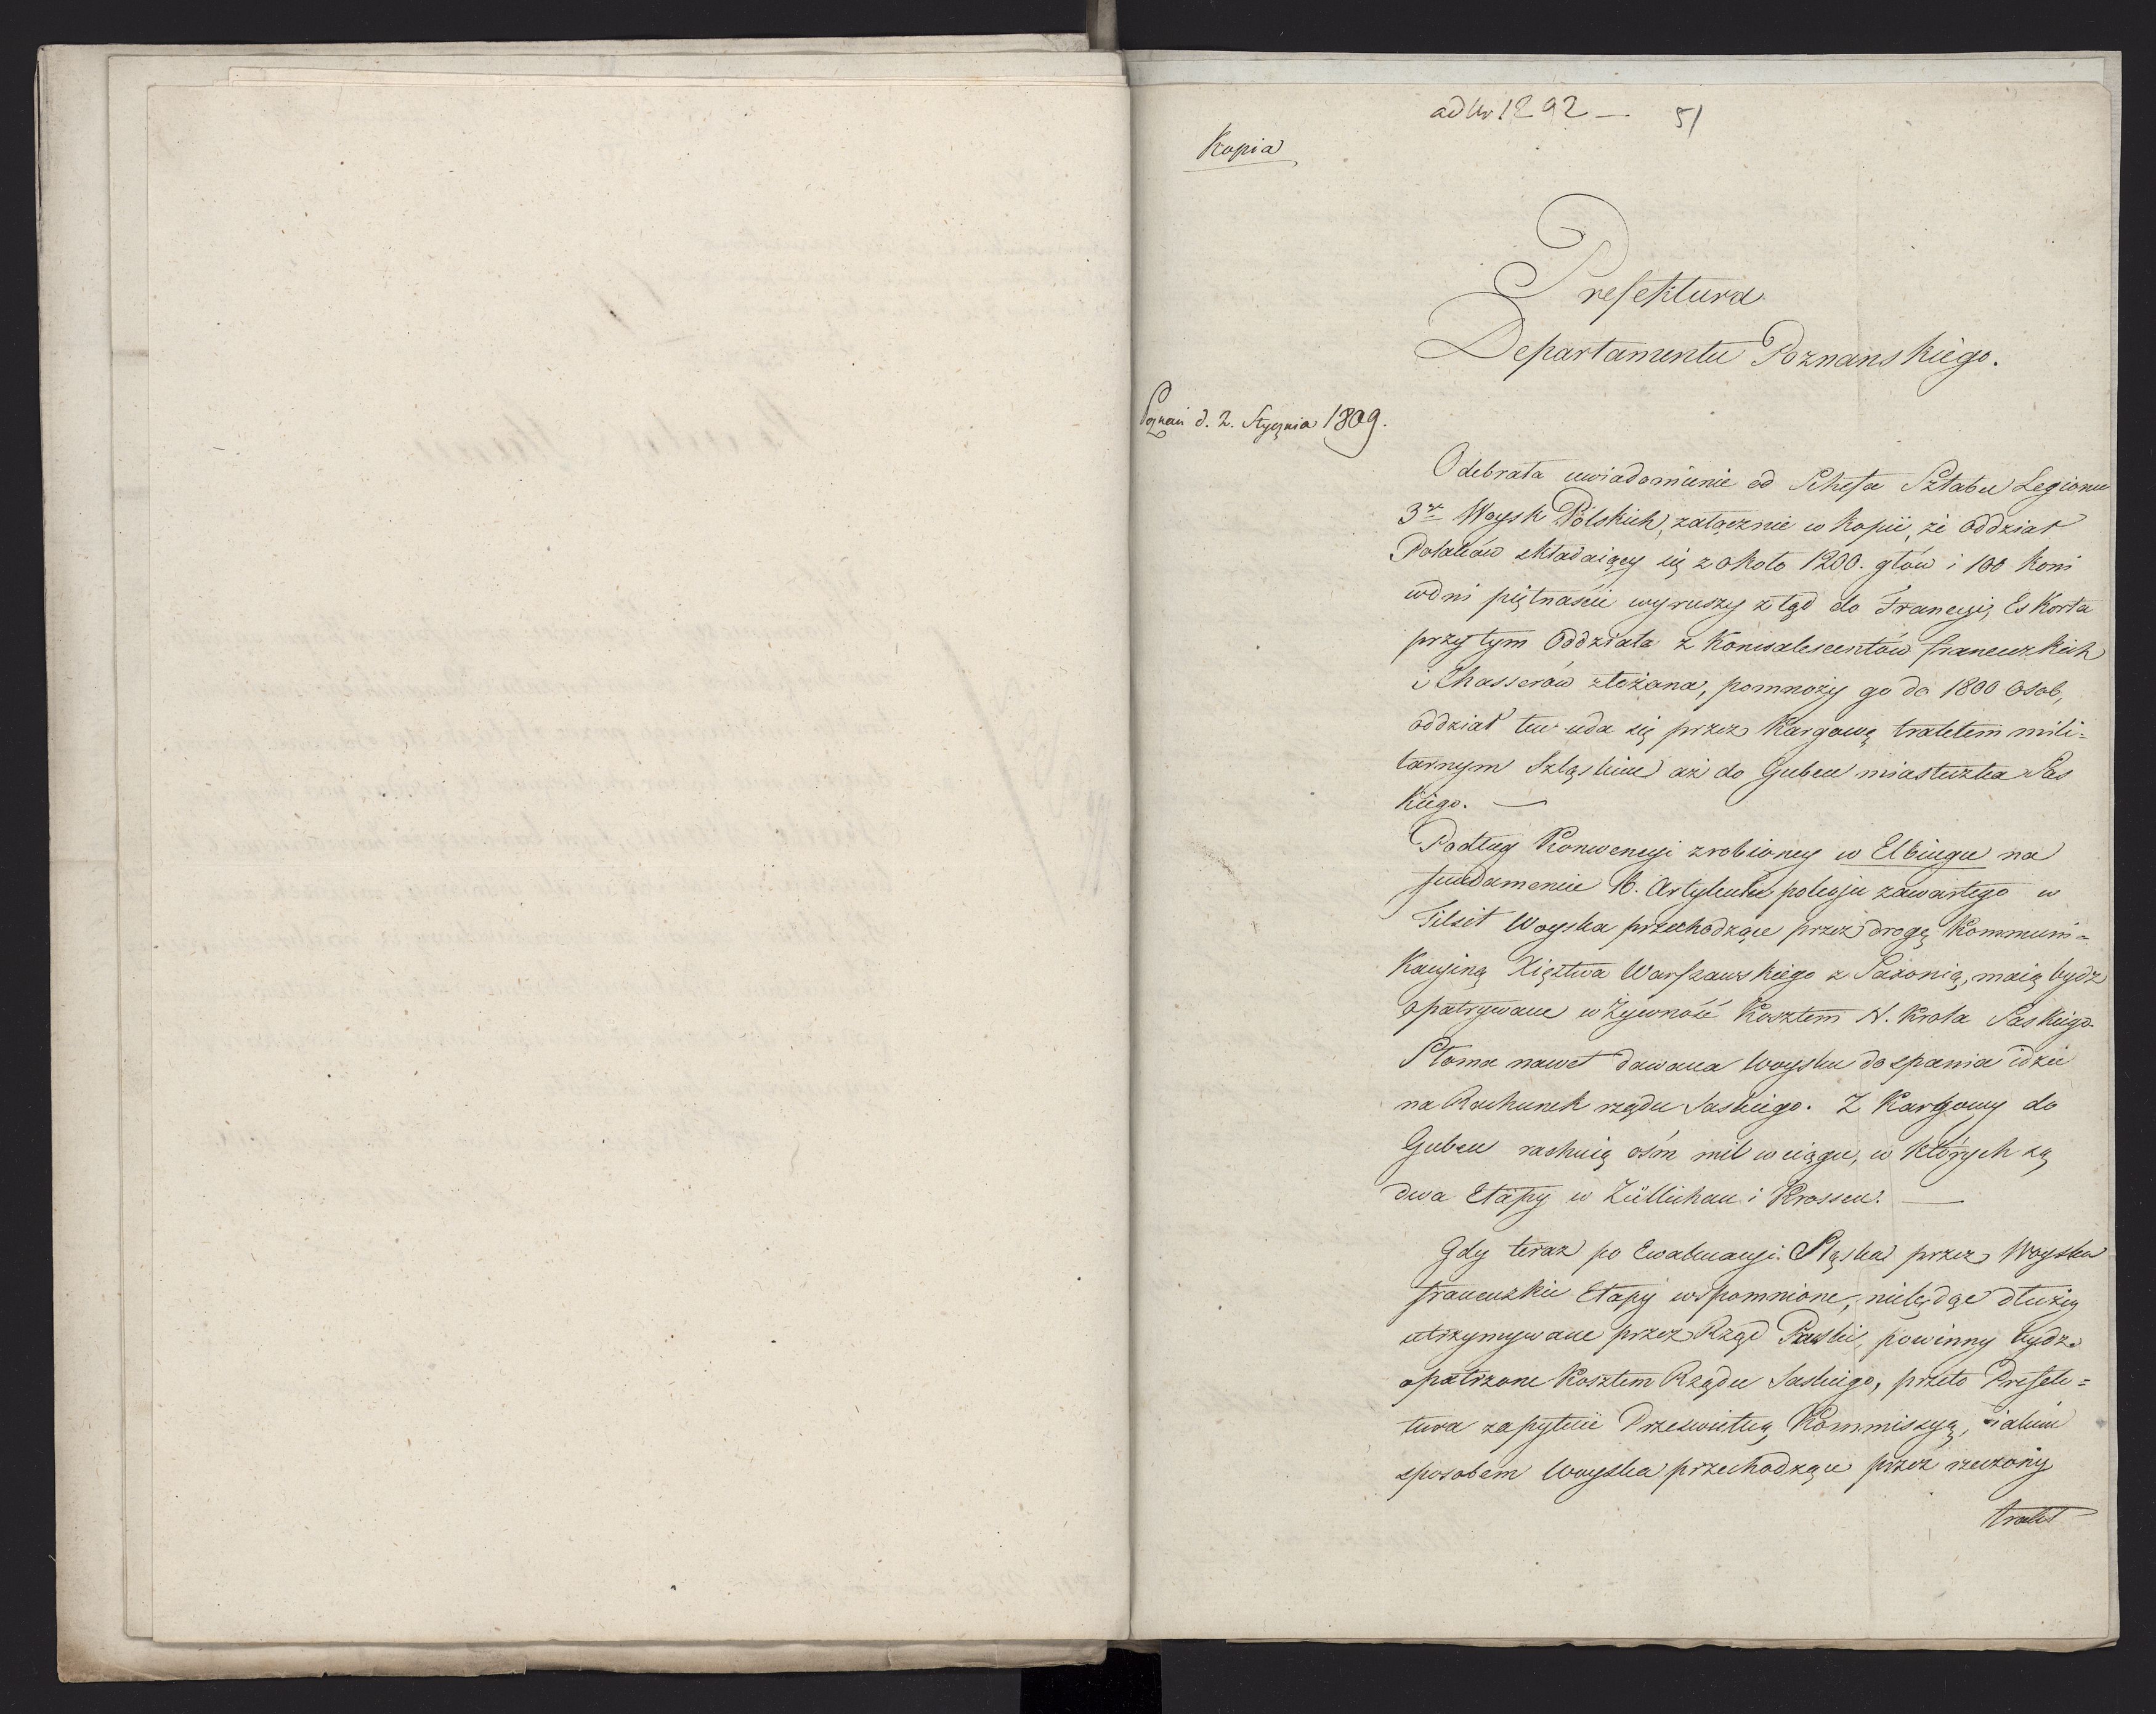 ad Nr 1292 — 51
Kopia
Prefektura
Departamentu Poznanskiego.
Poznań d. 2. Stycznia 1809.
Odebrała uwiadomienie od Schefa Sztabu Legionu
3ey Woysk Polskich, załącznie w kopii, że oddział
Polaków składaiący się z około 1200. głów i 100 koni
w dni piętnaście wyruszy ztąd do Francyi, Eskorta
przy tym Oddziale z Konwalescentów francuzkich
i Chasserów złożona, pomnoży go do 1800 osob,
oddział ten uda się przez Kargowę traktem mili=
tarnym Szląskim aż do Guben miasteczka Sas
kiego. —
Podług Konwencyi zrobioney w Elbingu na
fundamencie 16. Artykułu pokoju zawartego w
Tilsit Woyska przechodzące przez drogę Kommuni=
kacyiną Xięztwa Warszawskiego z Saxonią, maią bydz
opatrywane w Żywność Kosztem N. Krola Saskiego.
Słoma nawet dawana woysku do spania idzie
na Rachunek rządu Saskiego. Z Kargowy do
Guben rachuią ośm mil w ciągu, w których są
dwa Etapy w Züllichau i Krossen. —
Gdy teraz po Ewakuacyi Sląska przez Woyska
francuzkie Etapy wspomnione, niebędąc dłużey
utrzymywane przez Rząd Pruski, powinny bydz
opatrzone Kosztem Rządu Saskiego, przeto Prefek=
tura zapytuie Prześwietną Kommissyą, iakim
sposobem woyska przechodzące przez rzeczony
trakt